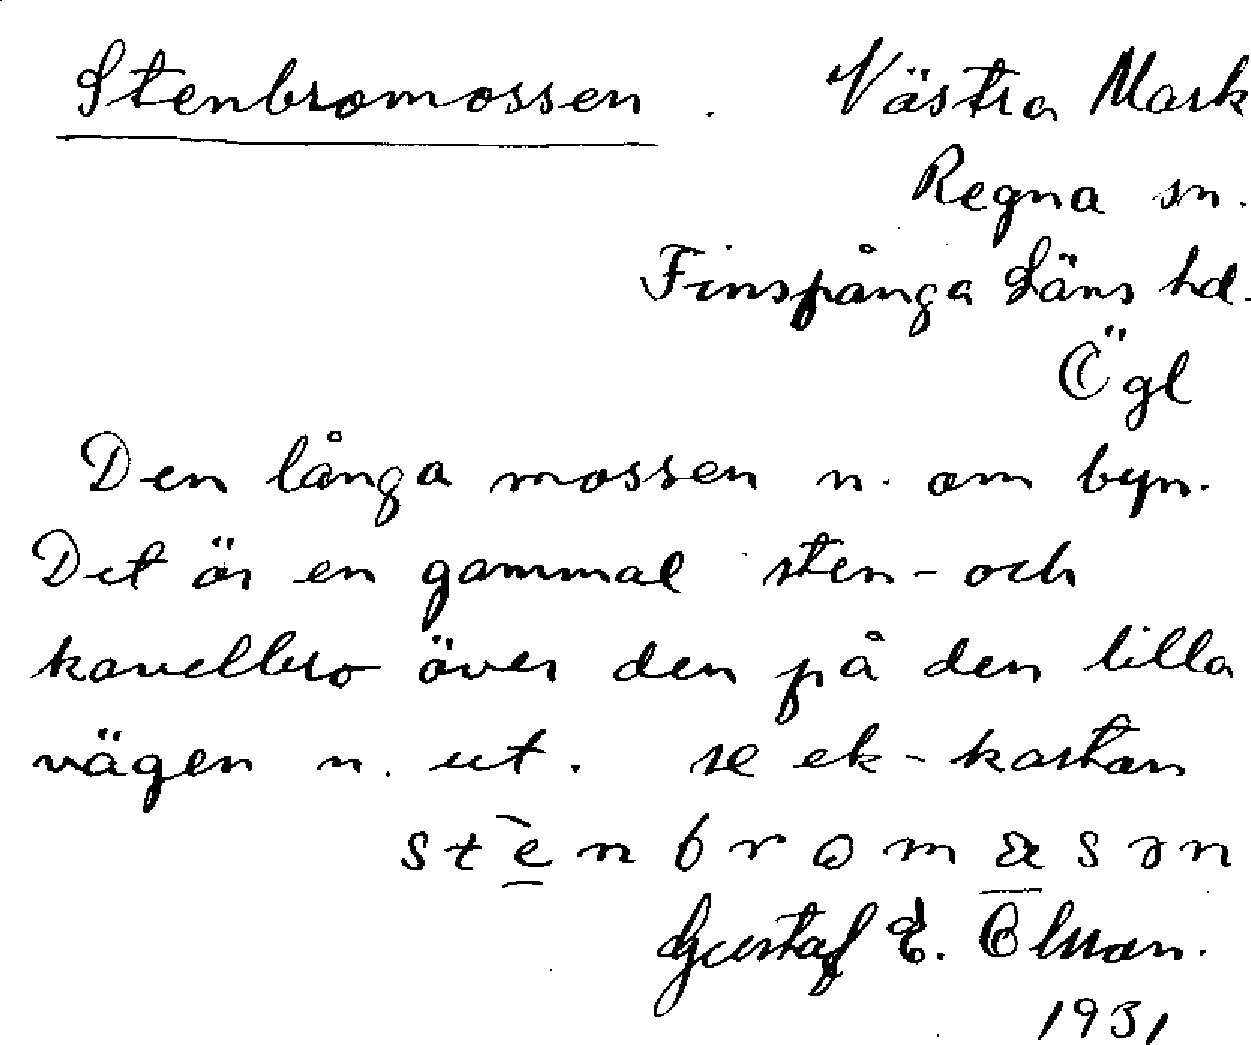 Stenbromossen. Västra Mark
Regna sn.
Finspånga Läns hd.
Ögl
Den långa mossen n. om byn.
Det är en gammal sten- och
kavelbro över den på den lilla
vägen n. ut. se ek-kartan
Gustaf E.
1931